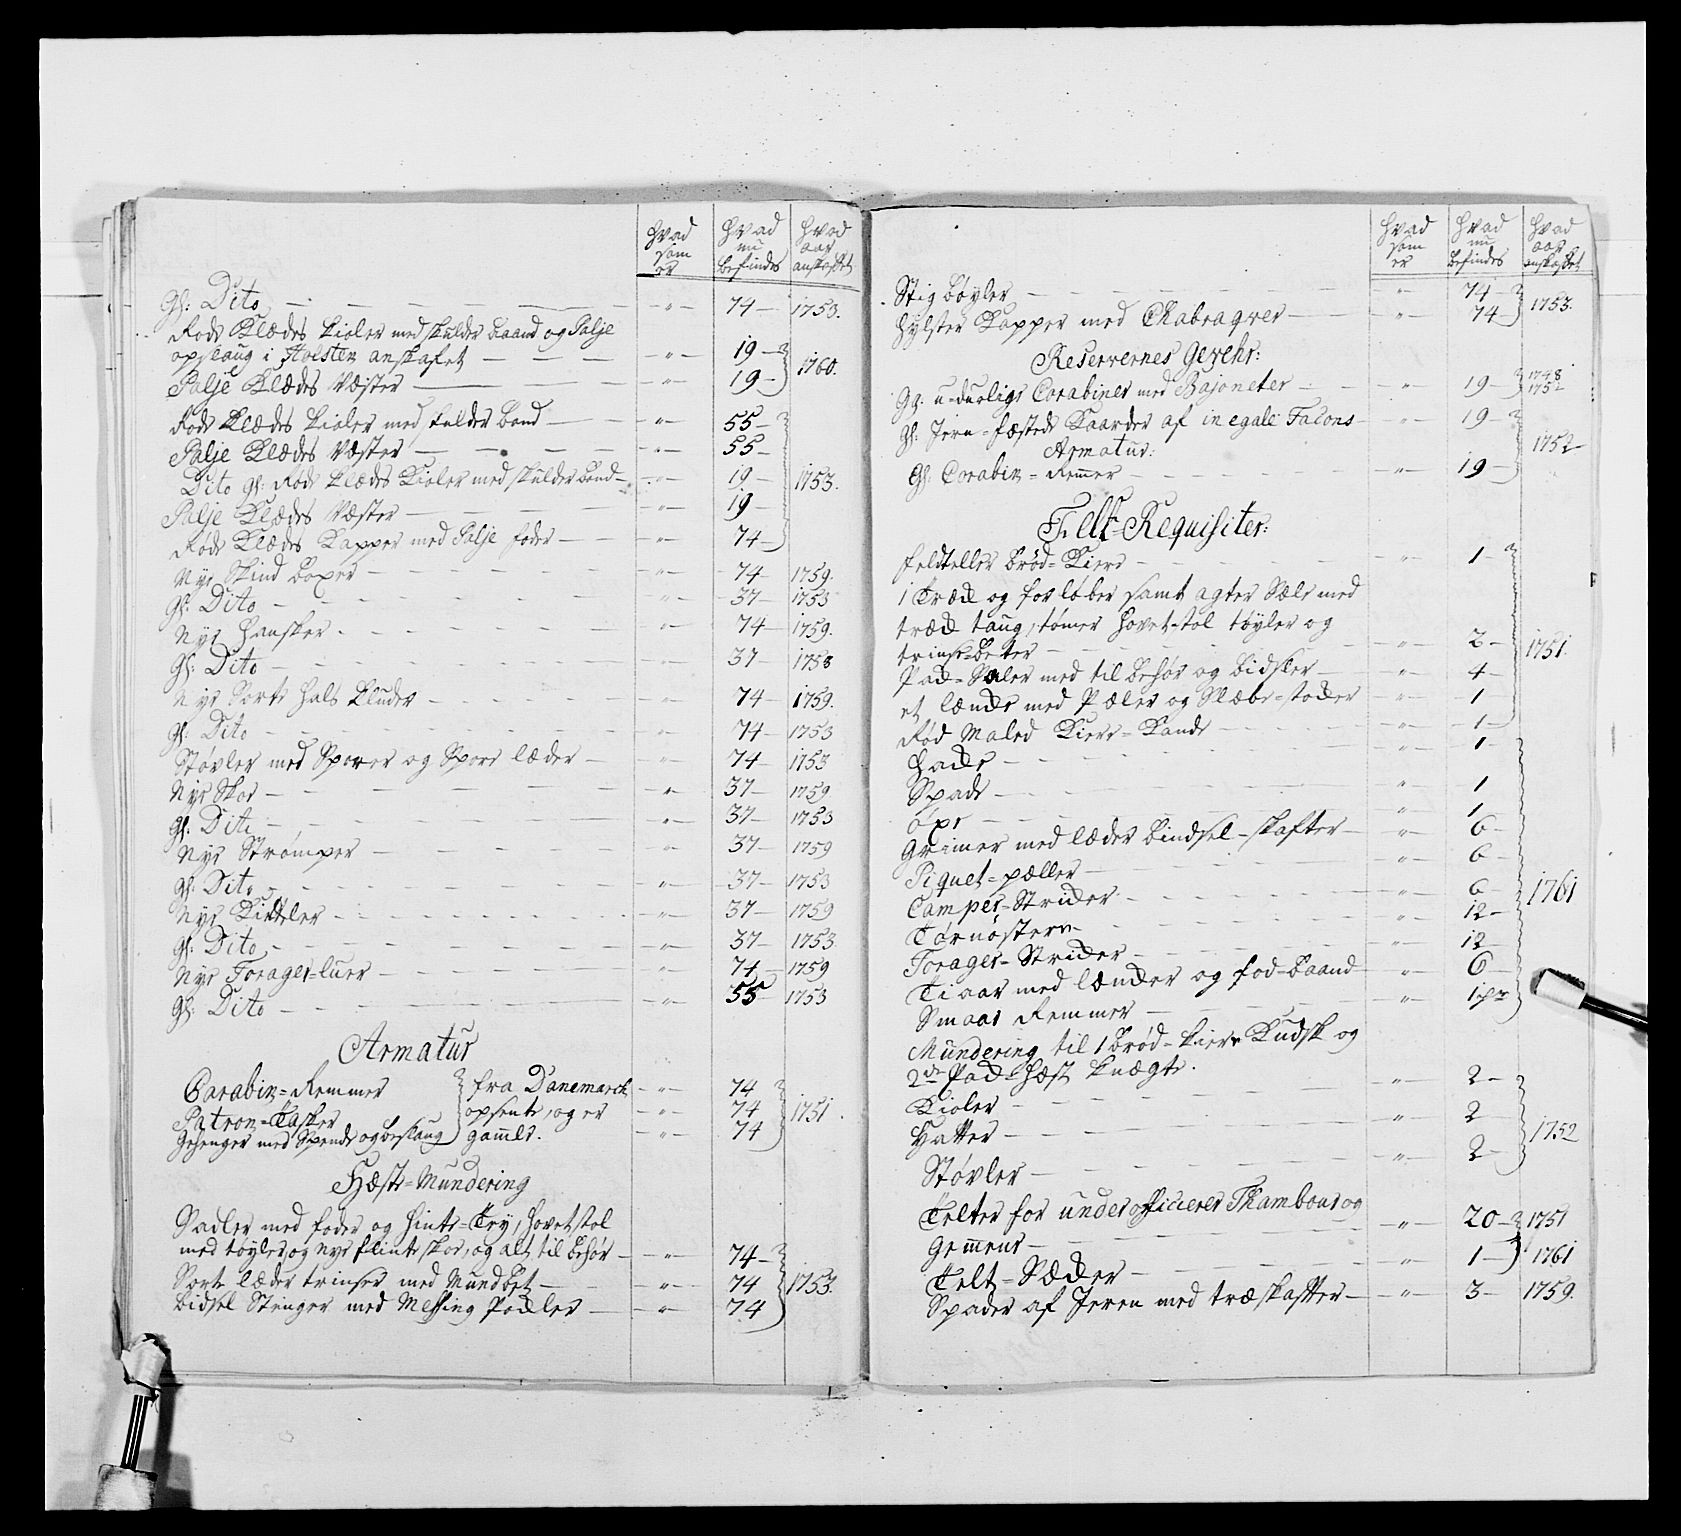 hvad som er
hvad nu befindes
hvad aar anskaffet
Gl: Dito — " — 74 — 1753.
Røde Klædes Kioler med skulder baand og Palje
opslaug i Holsten anskafet — " — 19 — 1760.
Palje Klædes Væster — " — 19 —
Røde Klædes Kioler med skulder bond — " — 55 —
Palje Klædes Væster — " — 55 —
Dito gl: Røde Klædes Kioler med skulder bond — " — 19 — 1753.
Palje Klædes Væster — " — 19 —
Røde Klædes Kapper med Palje foder — " — 74 —
Nye Skind boxer — " — 74 — 1759.
gl: Dito — " — 37 — 1753
Nye Hansker — " — 74 — 1759.
gl: Dito — " — 37 — 1758
Nye Sorte Hals Kluder — " — 74 — 1759.
gl: Dito — " — 74 — 1753
Støvler med Sporer og Spore læder — " — 74 — 1753
Nye Skoe — " — 37 — 1759
gl: Dito — " — 37 — 1753
Nye Strømper — " — 37 — 1759
gl: Dito — " — 37 — 1753
Nye Kidtler — " — 37 — 1759
gl: Dito — " — 37 — 1753.
Nye Forager-luer — " — 74 — 1759
gl: Dito — " — 55 — 1753
Armatur
Carabin-Remmer } fra Danemarck — " — 74
Patron-Tasker } opsente, og er — " — 74 1751.
Gehenger med Spende og beslaug } gamle. — " — 74
Hæste-Mundering
Sadler med foder og Hinte-Tøy, hovetstol
med tøyler, og nye flinte skoe, og alt til behør — " — 74 —
Sorte læder trinser med Mundbet — " — 74 1753.
Bidsel Stenger med Messing Pocler — " — 74
hvad som er
hvad nu befindes
hvad aar anskaffet
Stigbøyler — " — 74 — 1753.
Hylster Kapper med Chabraqver — " — 74
Reservernes gevehr:
Gl. u-duelige Carabiner med Bajoneter — " — 19 — 1748 1752
gl: Jern-fæstede Kaarder af in egale Facons — " — 19 —
Armatur: 1752
Gl: Carabin-Remer — " — 19 —
Felt-Requisiter:
feldteller brød-Kiere — " — 1 —
1 træd og forløber samt agter Sæle med
træd taug, tømer hovet-stol tøyler og
trinse-beter — " — 2 — 1751.
Pad-Saler med til behør og bidsler — " — 4 —
et lænde med Pæler og Slæbe-stocker — " — 1
Rød Maled Kiere-Kande — " — 1 —
Hacke — " — 1 —
Spade — " — 1
öxe — " — 1
Grimer med læder bindsel-skafter — " — 6 —
Piquet-pæller — " — 6 —
Camper-Strider — " — 6 — 1761
Tørnøstern — " — 12 —
Forager-Strider — " — 12 —
Tiaar med lænder og fod-baand — " — 6
Smaae Remmer — " — 1 pr
Mundering til 1 brød-kiere Kudsk og
2de Pad-Hæst Knægte.
Kioler — " — 2 —
Hatter — " — 2 1752
Støvler — " — 2 —
Telter for underofficierer Thambour og
Gemene — " — 20 — 1751
Telt-Sæcker — " — 1 — 1761
Spader af Jeren med træskaffter — " — 3 — 1759.